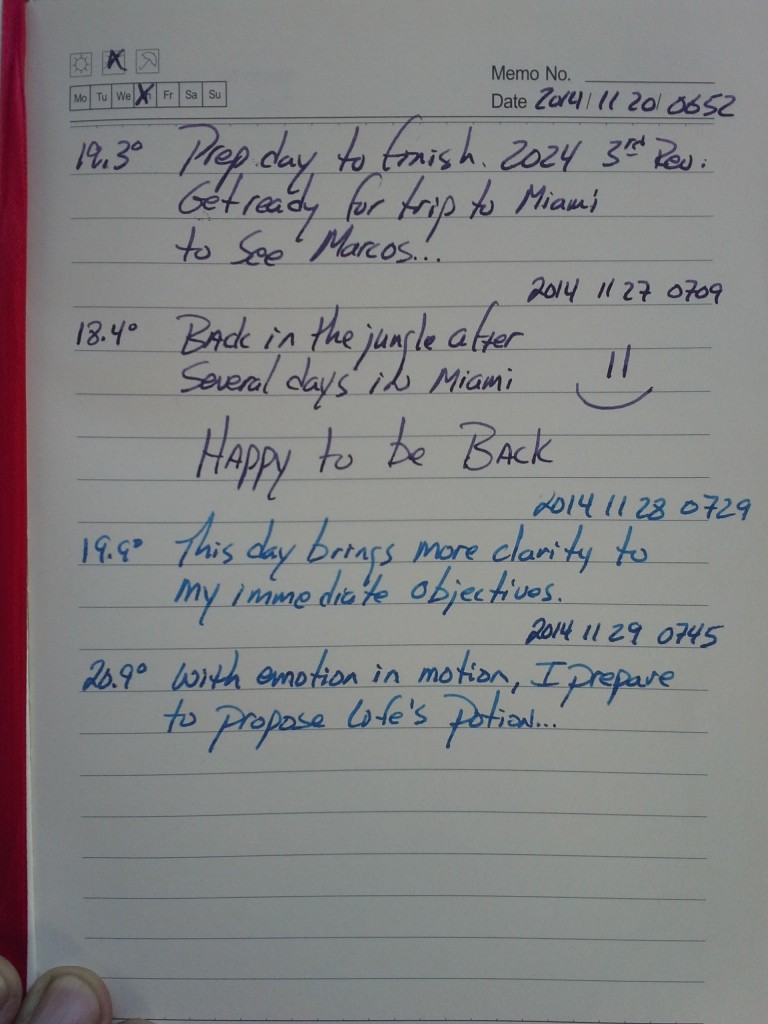 Memo No.
Mo Tu We Fr Sa Su
Date 2014/ 11 20/ 0652
19.3° Prep day to finish. 2024 3rd Rev.
Get ready for trip to Miami
to See Marcos...
2014 11 27 0709
18.4° BAck in the jungle after
Several days in Miami
HAppy to be BAck
2014 11 28 0729
19.9° This day brings more clarity to
my immediate objectives.
2014 11 29 0745
20.9° With emotion in motion, I prepare
to propose Life's Potion...